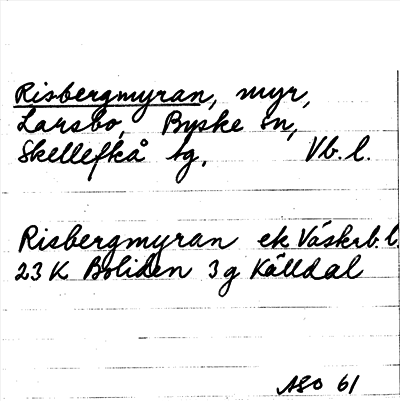 Risbergmyran, myr,
Larsbo, Byske sn,
Skellefteå tg, Vb. l.
Risbergmyran ek Västerb. l.
23 K Boliden 3 g Källdal
ASO 61